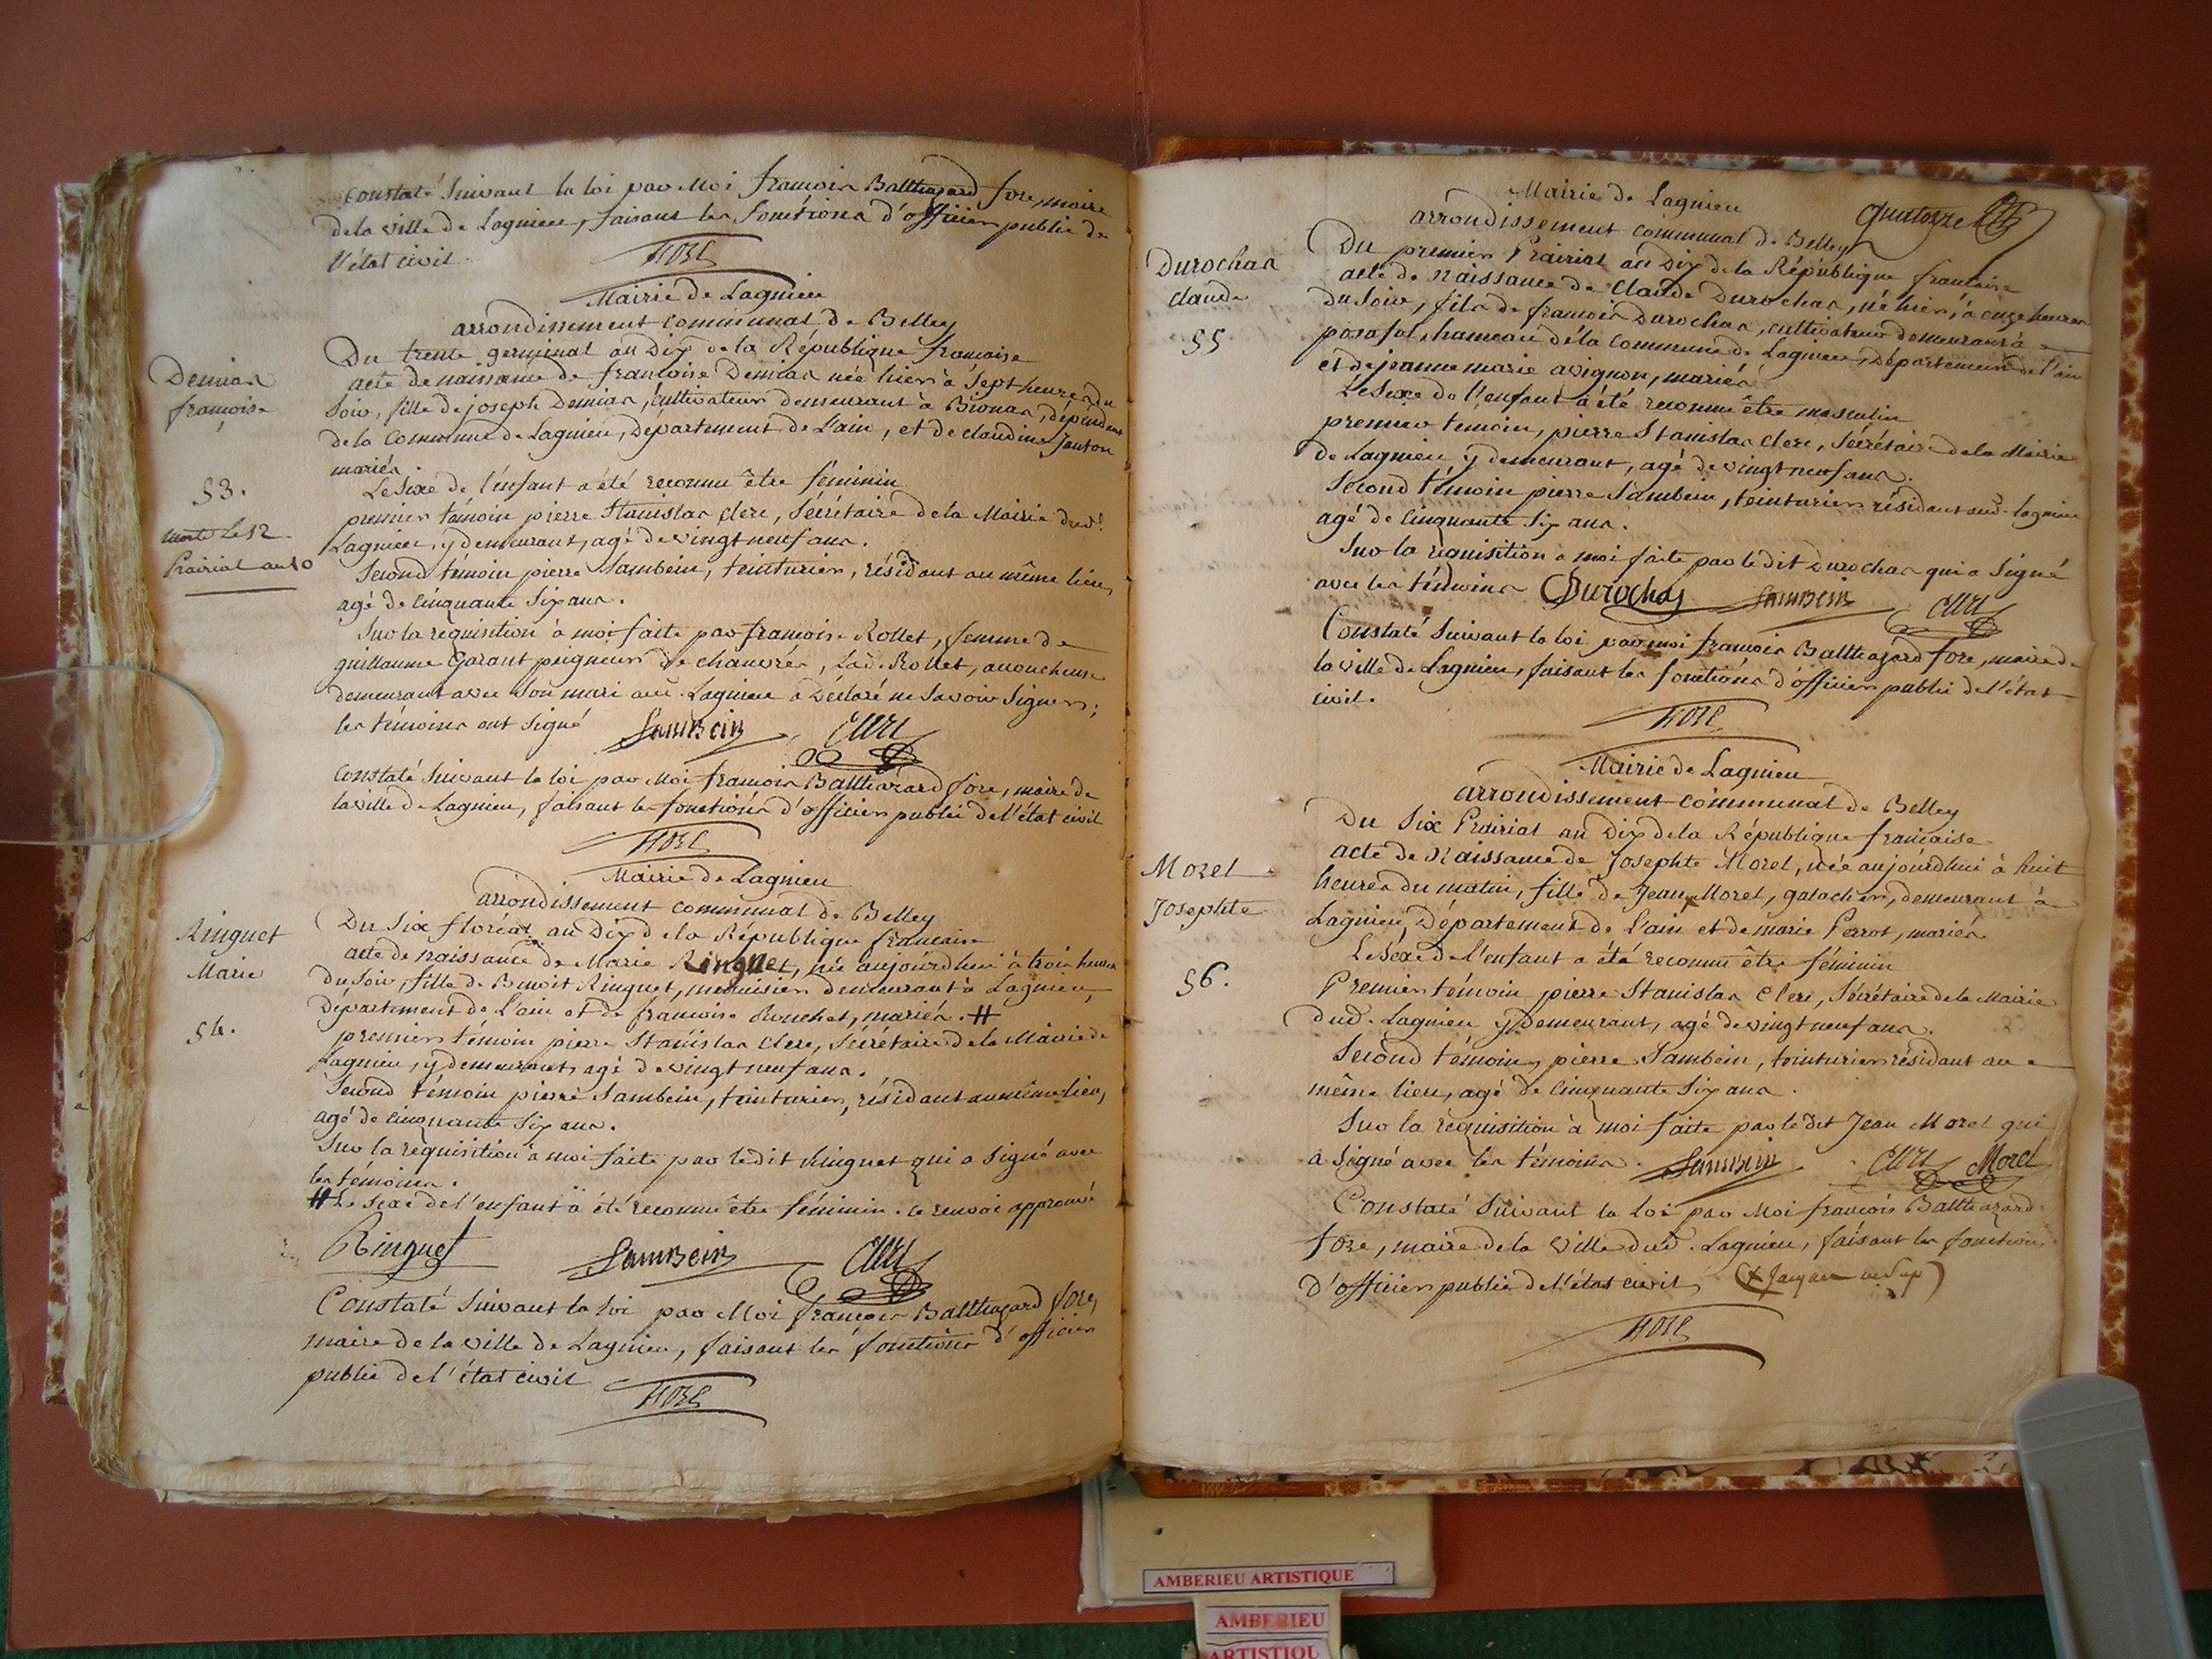 Constaté suivant la loi par Moi françois Balthazard fore, maire
de la ville de Lagnieu, faisant les fonctions d'officier public de
l'état civil.
FORE
Mairie de Lagnieu
arrondissement communal de Belley
Du trente germinal an Dix de la République française
Demias
françoise
53.
morte le 12
Prairial an 10
acte de naissance de françoise Demias née hier à sept heures du
soir, fille de joseph Demias, cultivateur demeurant à dépendant
de la Commune de Lagnieu, Département de L'ain, et de claudine Janton
mariés.
Le sexe de l'enfant a été reconnu être féminin
premier témoin pierre Stanislas Clerc, Sécrétaire de la Mairie dud.
Lagnieu, y demeurant, agé de vingt neuf ans.
Second témoin pierre Sambein, teinturier, résidant au même lieu,
agé de cinquante six ans.
Sur la réquisition à moi faite par françoise Rollet, femme de
guillaume garant peigneur de chanvres, lad. Rollet, accoucheuse
demeurant avec son mari aud. Lagnieu a Déclaré ne savoir signer;
les témoins ont signé SamBein Clerc
Constaté suivant la loi par Moi françois Balthazard fore, maire de
la ville de Lagnieu, faisant les fonctions d'officier public de l'état civil
FORE
Mairie de Lagnieu
arrondissement communal de Belley
Ringuet
Marie
54.
Du Six floréal an Dix de la République française
acte de naissance de Marie Ringuet, née aujourd'hui à trois heures
du soir, fille de Benoit Ringuet, menuisier demeurant à Lagnieu,
Département de L'ain et de françoise Bouchet, mariés. #
premier témoin pierre Stanislas Clerc, Sécrétaire de la Mairie de
Lagnieu, y demeurant, agé de vingt neuf ans.
Second témoin pierre Sambein, teinturier, résidant au même lieu,
agé de cinquante six ans.
Sur la réquisition à moi faite par ledit Ringuet qui a signé avec
les témoins.
# Le sexe de l'enfant a été reconnu être féminin. ce renvoi approuvé
Ringuet SamBein Clerc
Constaté suivant la loi par Moi françois Balthazard fore,
maire de la ville de Lagnieu, faisant les fonctions d'officier
public de l'état civil
FORE
Mairie de Lagnieu
quatorze
arrondissement communal de Belley
Durochas
claude
55
Du premier Prairial an Dix de la République française
acte de naissance de Claude Durochas, né hier, à onze heures
du soir, fils de françois Durochas, cultivateur demeurant à
posafol, hameau de la commune de Lagnieu, Département de l'ain
et de jeanne marie avignon, mariés
Le Sexe de l'enfant a été reconnu être masculin
premier témoin, pierre Stanislas Clerc, Sécrétaire de la Mairie
de Lagnieu y demeurant, agé de vingt neuf ans.
Second témoin pierre Sambein, teinturier résidant aud. Lagnieu
agé de cinquante six ans.
Sur la réquisition à moi faite par ledit Durochas qui a Signé
avec les témoins Durochas SamBein Clerc
Constaté suivant la loi par moi françois Balthazard fore, maire de
la ville de Lagnieu, faisant les fonctions d'officier public de l'état
civil.
FORE
Mairie de Lagnieu
arrondissement communal de Belley
Du Six Prairial an Dix de la République française
Morel
Josephte
56.
acte de Naissance de Josephte Morel, née aujourdhui à huit
heures du matin, fille de Jean x Morel, galochier, demeurant à
Lagnieu, Département de L'ain et de marie Perrot, mariés
Le Sexe de l'enfant a été reconnu être féminin
Premier témoin pierre Stanislas Clerc, Sécrétaire de la Mairie
dud. Lagnieu y demeurant, agé de vingt neuf ans.
Second témoin, pierre Sambein, teinturier résidant au
même lieu, agé de cinquante six ans.
Sur la réquisition à moi faite par ledit Jean Morel qui
a signé avec les témoins. SamBein Clerc Morel
Constaté suivant la loi par Moi françois Balthazard
fore, maire de la ville dud. Lagnieu, faisant les fonctions
d'officier public de l'état civil
FORE
AMBERIEU ARTISTIQUE
AMBERIEU
ARTISTIQU